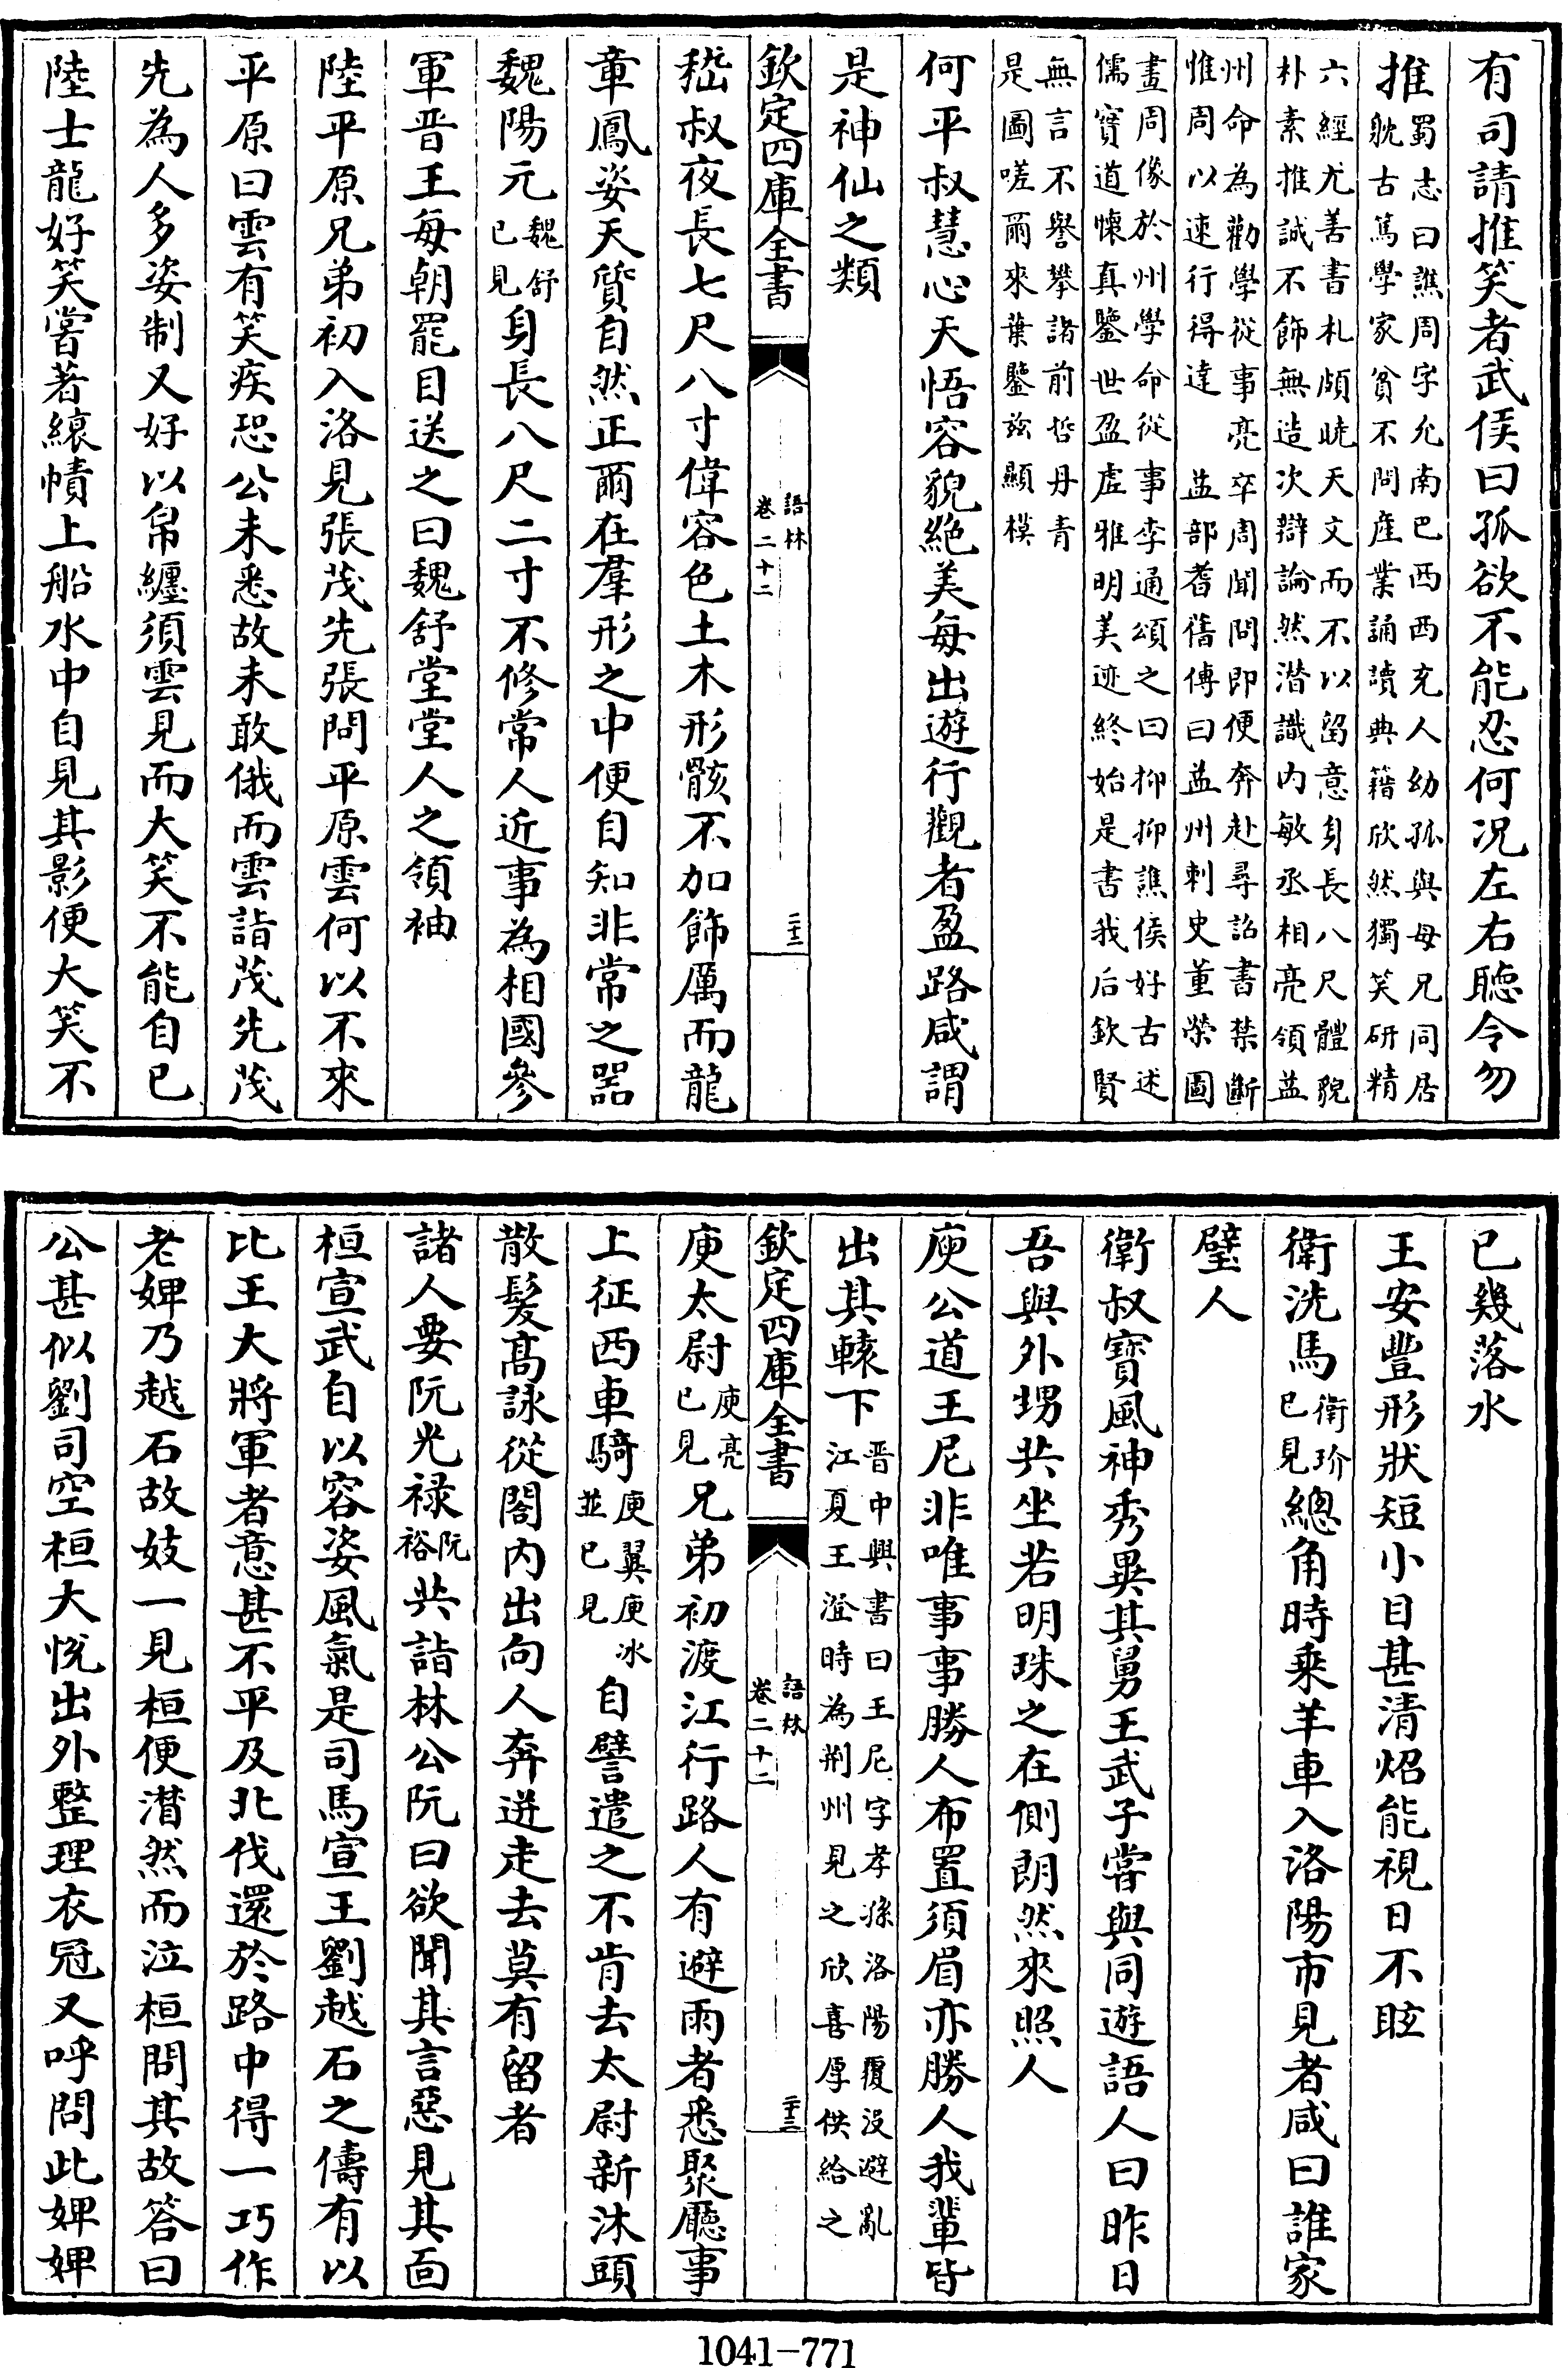 有司請推笑者武侯曰孤欲不能忍何况左右聽令勿
推蜀志曰譙周字允南巴西西充人幼孤與母兄同居
耽古篤學家貧不問産業誦讀典籍欣然獨笑研精
六經尤善書札頗暁天文而不以留意身長八尺體貌
朴素推誠不飾無造次辯論然潜識内敏丞相亮領益
州命為勸學從事亮卒周聞問即便奔赴尋詔書禁斷
惟周以速行得達 益部耆舊傅曰益州刺史董榮圖
畫周像於州學命從事李通頌之曰抑抑譙侯好古述
儒寶道懐真鑒世盈虚雅明美迹終始是書我后欽賢
無言不譽攀諸前哲丹青
是圖嗟爾來葉鑒兹顯模
何平叔慧心天悟容貌絶美每出遊行觀者盈路咸謂
是神仙之類
欽定四庫全書
語林
卷二十二
二十二
嵇叔夜長七尺八寸偉容色土木形骸不加飾厲而龍
章鳳姿天質自然正爾在羣形之中便自知非常之器
魏陽元魏舒已見身長八尺二寸不修常人近事為相國參
軍晋王每朝罷目送之曰魏舒堂堂人之領袖
陸平原兄弟初入洛見張茂先張問平原雲何以不來
平原曰雲有笑疾恐公未悉故未敢俄而雲詣茂先茂
先為人多姿制又好以帛纏須雲見而大笑不能自已
陸士龍好笑嘗著縗幘上船水中自見其影便大笑不
已幾落水
王安豐形狀短小目甚清炤能視日不眩
衛洗馬衛玠已見總角時乗羊車入洛陽市見者咸曰誰家
璧人
衛叔寶風神秀異其舅王武子嘗與同遊語人曰昨日
吾與外甥共坐若明珠之在側朗然來照人
庾公道王尼非唯事事勝人布置須眉亦勝人我輩皆
出其轅下晋中興書曰王尼字孝孫洛陽覆没避亂
江夏王澄時為荆州見之欣喜厚供給之
欽定四庫全書
語林
卷二十二
二十三
庾太尉庾亮已見兄弟初渡江行路人有避雨者悉聚廳事
上征西車騎庾翼庾冰並已見自譬遣之不肯去太尉新沐頭
散髮高詠從閤内出向人奔迸走去莫有留者
諸人要阮光禄阮裕共詣林公阮曰欲聞其言惡見其面
桓宣武自以容姿風氣是司馬宣王劉越石之儔有以
比王大將軍者意甚不平及北伐還於路中得一巧作
老婢乃越石故妓一見桓便潸然而泣桓問其故答曰
公甚似劉司空桓大悦出外整理衣冠又呼問此婢婢
1041-771